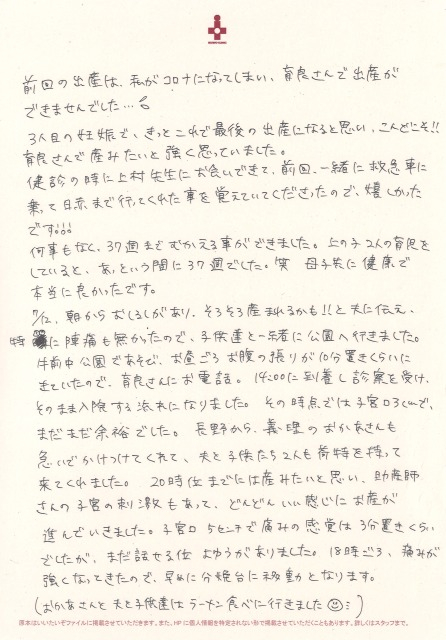 前回の出産は、私がコロナになってしまい、育良さんで出産が
できませんでした…
3人目の妊娠で、きっとこれで最後の出産になると思い、こんどこそ!!
育良さんで産みたいと強く思っていました。
健診の時に上村先生にお会いできて、前回、一緒に救急車に
乗って日赤まで行ってくれた事を覚えていてくださったので、嬉しかった
です!!!
何事もなく、37週までむかえる事ができました。上の子2人の育児を
していると、あっという間に37週でした。笑 母子共に健康で
本当に良かったです。
7/12、朝からおしるしがあり、そろそろ産まれるかも!!と夫に伝え、
特に陣痛も無かったので、子供達と一緒に公園へ行きました。
午前中公園であそび、お昼ごろお腹の張りが10分置きくらいに
きていたので、育良さんにお電話。14:00に到着し診察を受け、
そのまま入院する流れになりました。その時点では子宮口3cmで、
まだまだ余裕でした。長野から、義理のおかあさんも
急いでかけつけてくれて、夫と子供たち2人も荷物を持って
来てくれました。20時位までには産みたいと思い、助産師
さんの子宮の刺激もあって、どんどんいい感じにお産が
進んでいきました。子宮口5センチで痛みの感覚は3分置きくらい
でしたが、まだ話せる位よゆうがありました。18時ごろ、痛みが
強くなってきたので、早めに分娩台に移動となります。
(おかあさんと夫と子供達はラーメン食べに行きました)
原本はいいたいぞファイルに掲載させていただきます。また、HPに個人情報を特定されない形で掲載させていただくこともあります。詳しくはスタッフまで。